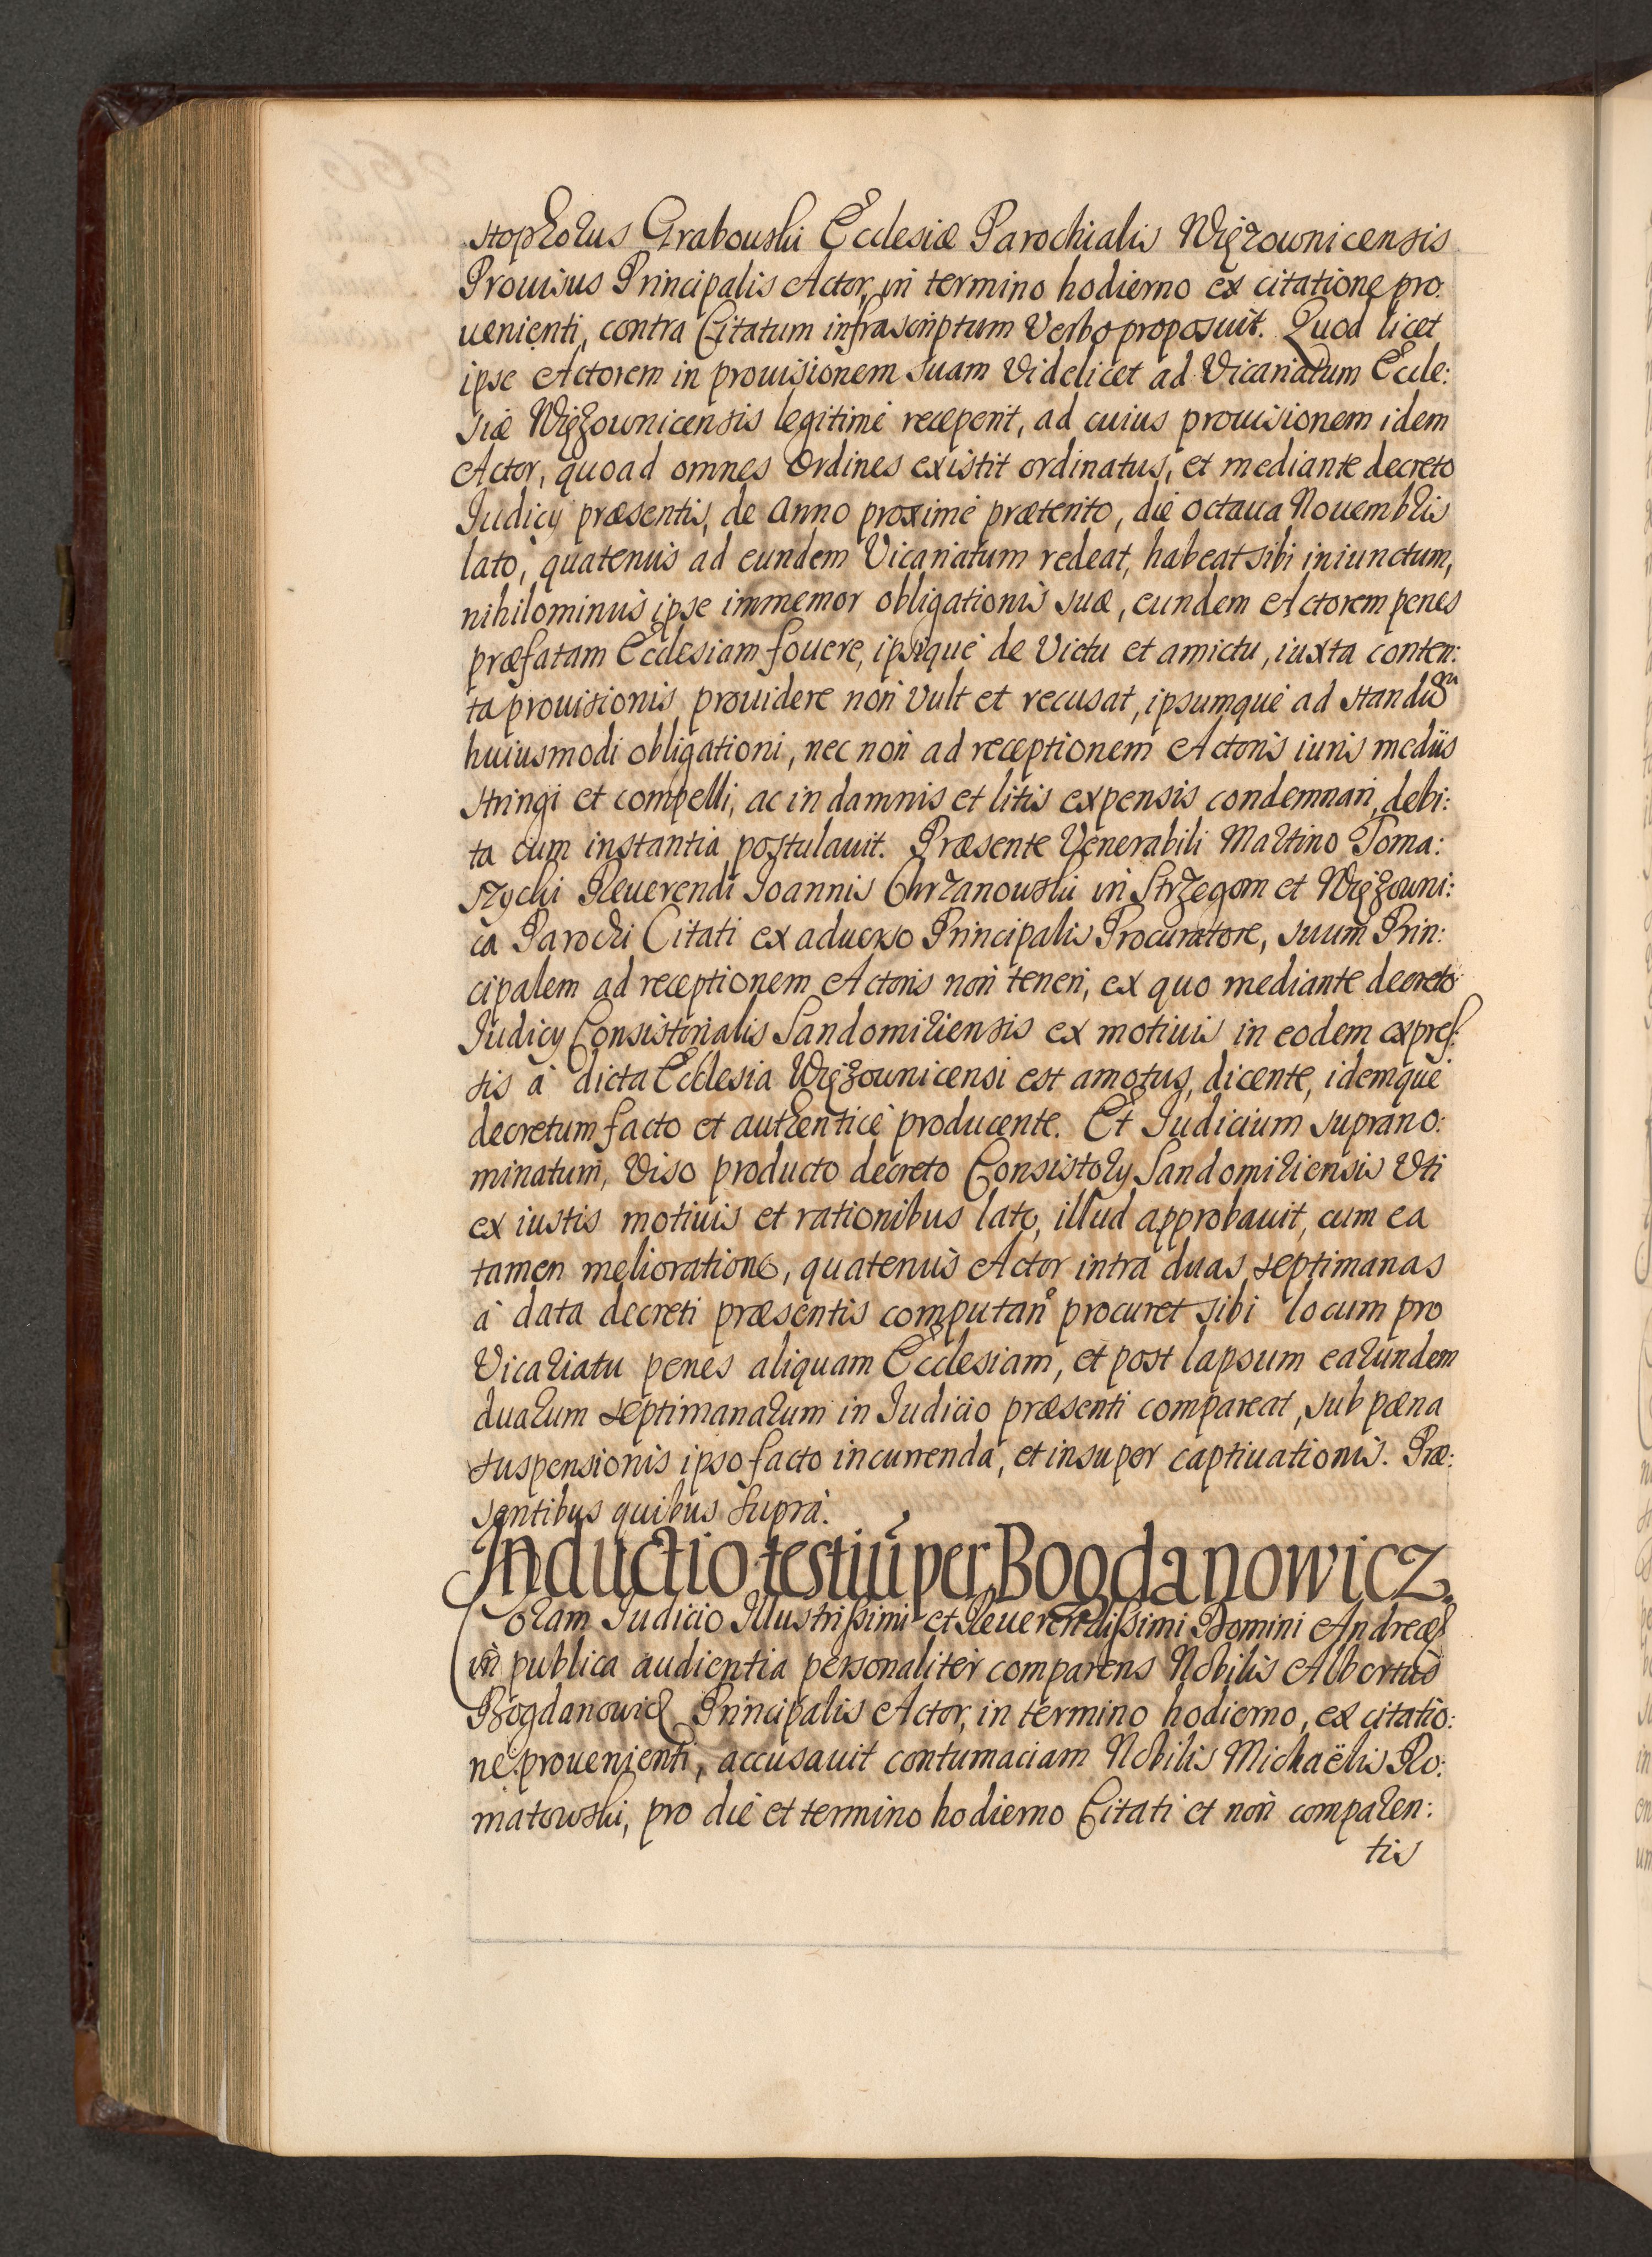 stophorus Grabowski Ecclesiæ Parochialis Więzownicensis
Prouisus Principalis Actor, in termino hodierno ex citatione pro:
uenienti, contra Citatum infrascriptum Verbo proposuit. Quod licet
ipse Actorem in prouisionem suam Videlicet ad Vicariatum Eccle:
siæ Więzownicensis legitimè receperit, ad cuius prouisionem idem
Actor, quoad omnes Ordines existit ordinatus, et mediante decreto
Iudicij præsentis, de Anno proximè præterito, die octaua Nouembris
lato, quatenus ad eundem Vicariatum redeat, habeat sibi iniunctum,
nihilominus ipse immemor obligationis suæ, eundem Actorem penes
præfatam Ecclesiam fouere, ipsique de Victu et amictu, iuxta conten:
ta prouisionis prouidere non vult et recusat, ipsumque ad standum
huiusmodi obligationi, nec non ad receptionem Actoris iuris medijs
stringi et compelli, ac in damnis et litis expensis condemnari, debi:
ta cum instantia postulauit. Præsente Venerabili Martino Toma:
szycki Reuerendi Ioannis Chrzanowski in Strzegom et Więzowni:
ca Parochi Citati ex aduerso Principalis Procuratore, suum Prin:
cipalem ad receptionem Actoris non teneri, ex quo mediante decreto
Iudicij Consistorialis Sandomiriensis ex motiuis in eodem expres:
sis à dicta Ecclesia Więzownicensi est amotus, dicente, idemque
decretum facto et authenticè producente. Et Iudicium suprano:
minatum, Viso producto decreto Consistorij Sandomiriensis Vti
ex iustis motiuis et rationibus lato, illud approbauit, cum ea
tamen melioratione, quatenus Actor intra duas septimanas
à data decreti præsentis computan° procuret sibi locum pro
Vicariatu penes aliquam Ecclesiam, et post lapsum earundem
duarum septimanarum in Iudicio præsenti compareat, sub pæna
suspensionis ipso facto incurrenda, et insuper captiuationis. Præ:
sentibus quibus suprà.
Inductio testiũ per Bogdanowicz.
Coram Iudicio Illustrissimi et Reuerendissimi Domini Andreæ
in publica audientia personaliter comparens Nobilis Albertus
Bogdanowicz Principalis Actor, in termino hodierno, ex citatio:
ne prouenienti, accusauit contumaciam Nobilis Michaëlis Ro:
matowski, pro die et termino hodierno Citati et non comparen:
tis